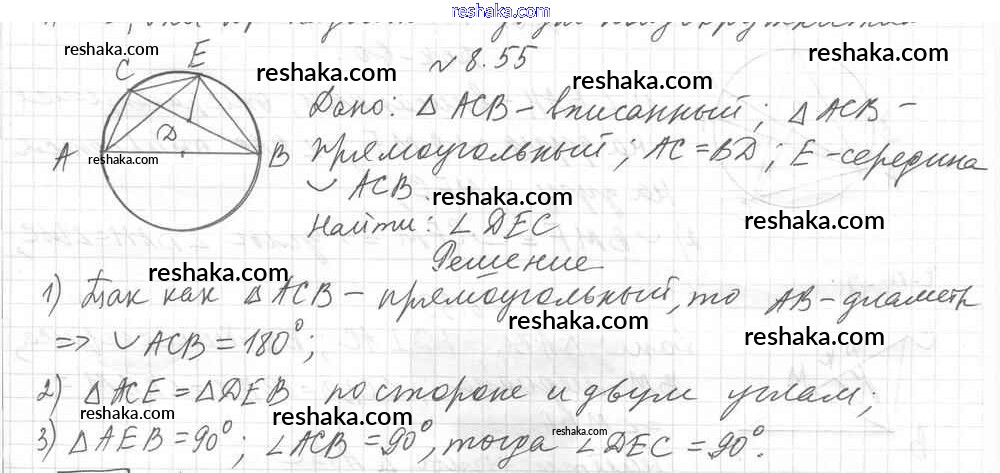 reshaka.com
reshaka.com
reshaka.com
№ 8.55
reshaka.com
reshaka.com
C E
A D B
reshaka.com
Дано: △ ACB – вписанный; △ ACB –
reshaka.com
reshaka.com
прямоугольный; AC = BD; E – середина
◡ ACB.
reshaka.com
reshaka.com
Найти: ∠ DEC
Решение
reshaka.com
1) Так как △ ACB – прямоугольный, то AB – диаметр
reshaka.com
reshaka.com
=> ◡ ACB = 180°;
2) △ ACE = △ DEB – по стороне и двум углам;
reshaka.com
reshaka.com
reshaka.com
3) △ AEB = 90°; ∠ ACB = 90°, тогда ∠ DEC = 90°.
reshaka.com